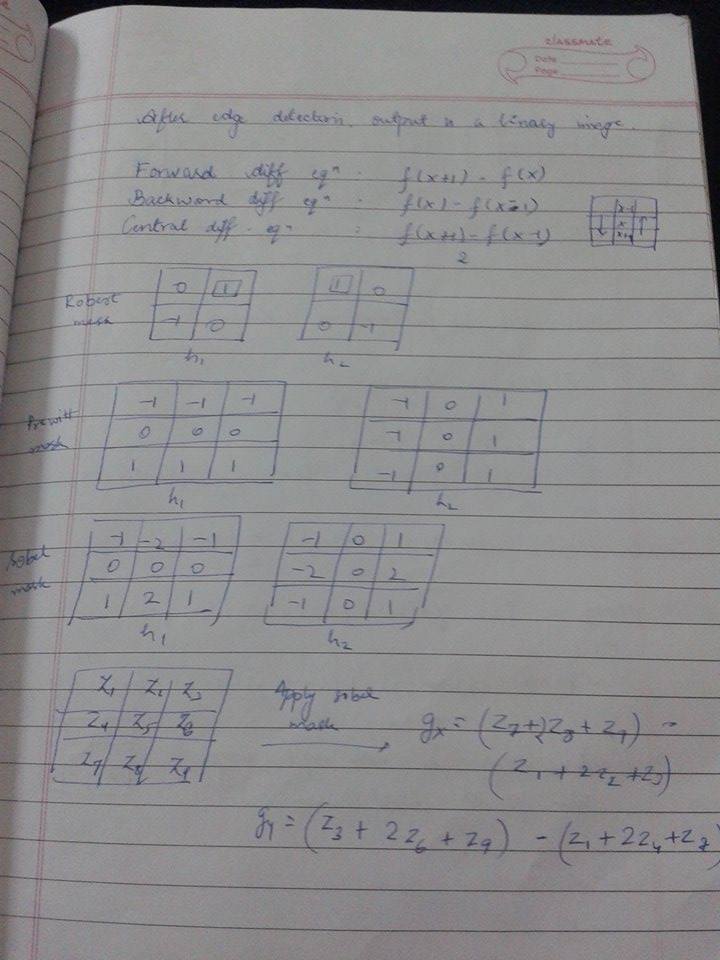 classmate
Date
Page
After edge detection, output is a binary image.
Forward diff eqn : f(x+1) - f(x)
Backword diff eqn : f(x) - f(x-1)
Central diff. eqn : f(x+1) - f(x-1)
2
x-1
x
x+1
Robert mask
0 1
-1 0
h1
1 0
0 -1
h2
Prewitt mask
-1 -1 -1
0 0 0
1 1 1
h1
-1 0 1
-1 0 1
-1 0 1
h2
Sobel mask
-1 -2 -1
0 0 0
1 2 1
h1
-1 0 1
-2 0 2
-1 0 1
h2
Z1 Z2 Z3
Z4 Z5 Z6
Z7 Z8 Z9
Apply sobel mask
gx = (Z7 + 2Z8 + Z9) -
(Z1 + 2Z2 + Z3)
gy = (Z3 + 2Z6 + Z9) - (Z1 + 2Z4 + Z7)